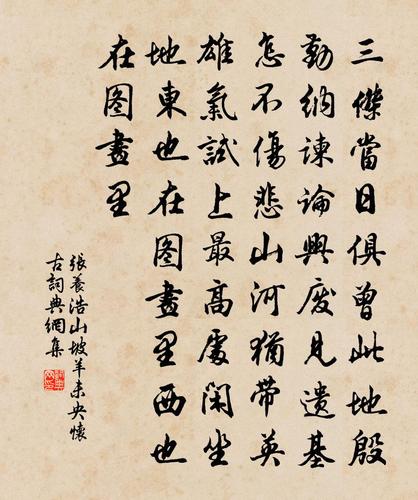 三傑當日俱曾此地殷
勤納諫論興廢見遺基
怎不傷悲山河猶帶英
雄氣試上最高處閑坐
地東也在图畫里西也
在图畫里
張養浩山坡羊未央懷
古詞典網集